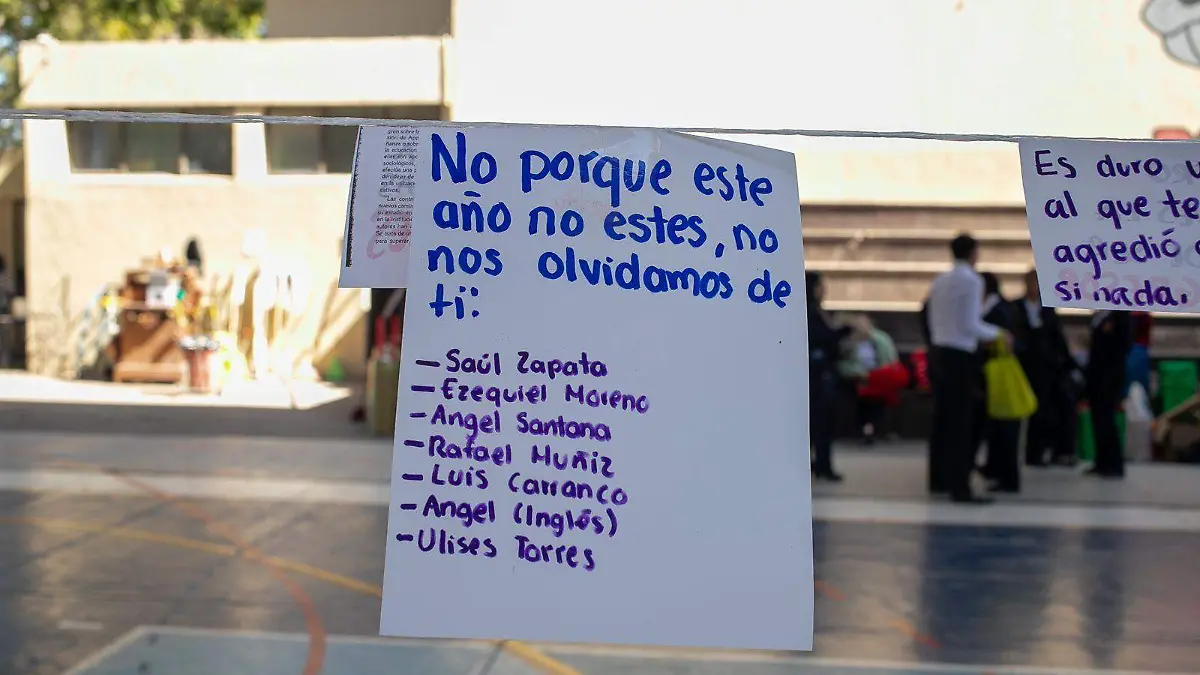 No porque este
año no estes, no
nos olvidamos de
ti:
- Saúl Zapata
- Ezequiel Moreno
- Angel Santana
- Rafael Muñiz
- Luis Carranco
- Angel (Inglés)
- Ulises Torres
Es duro
al que te
agredió
si nada.